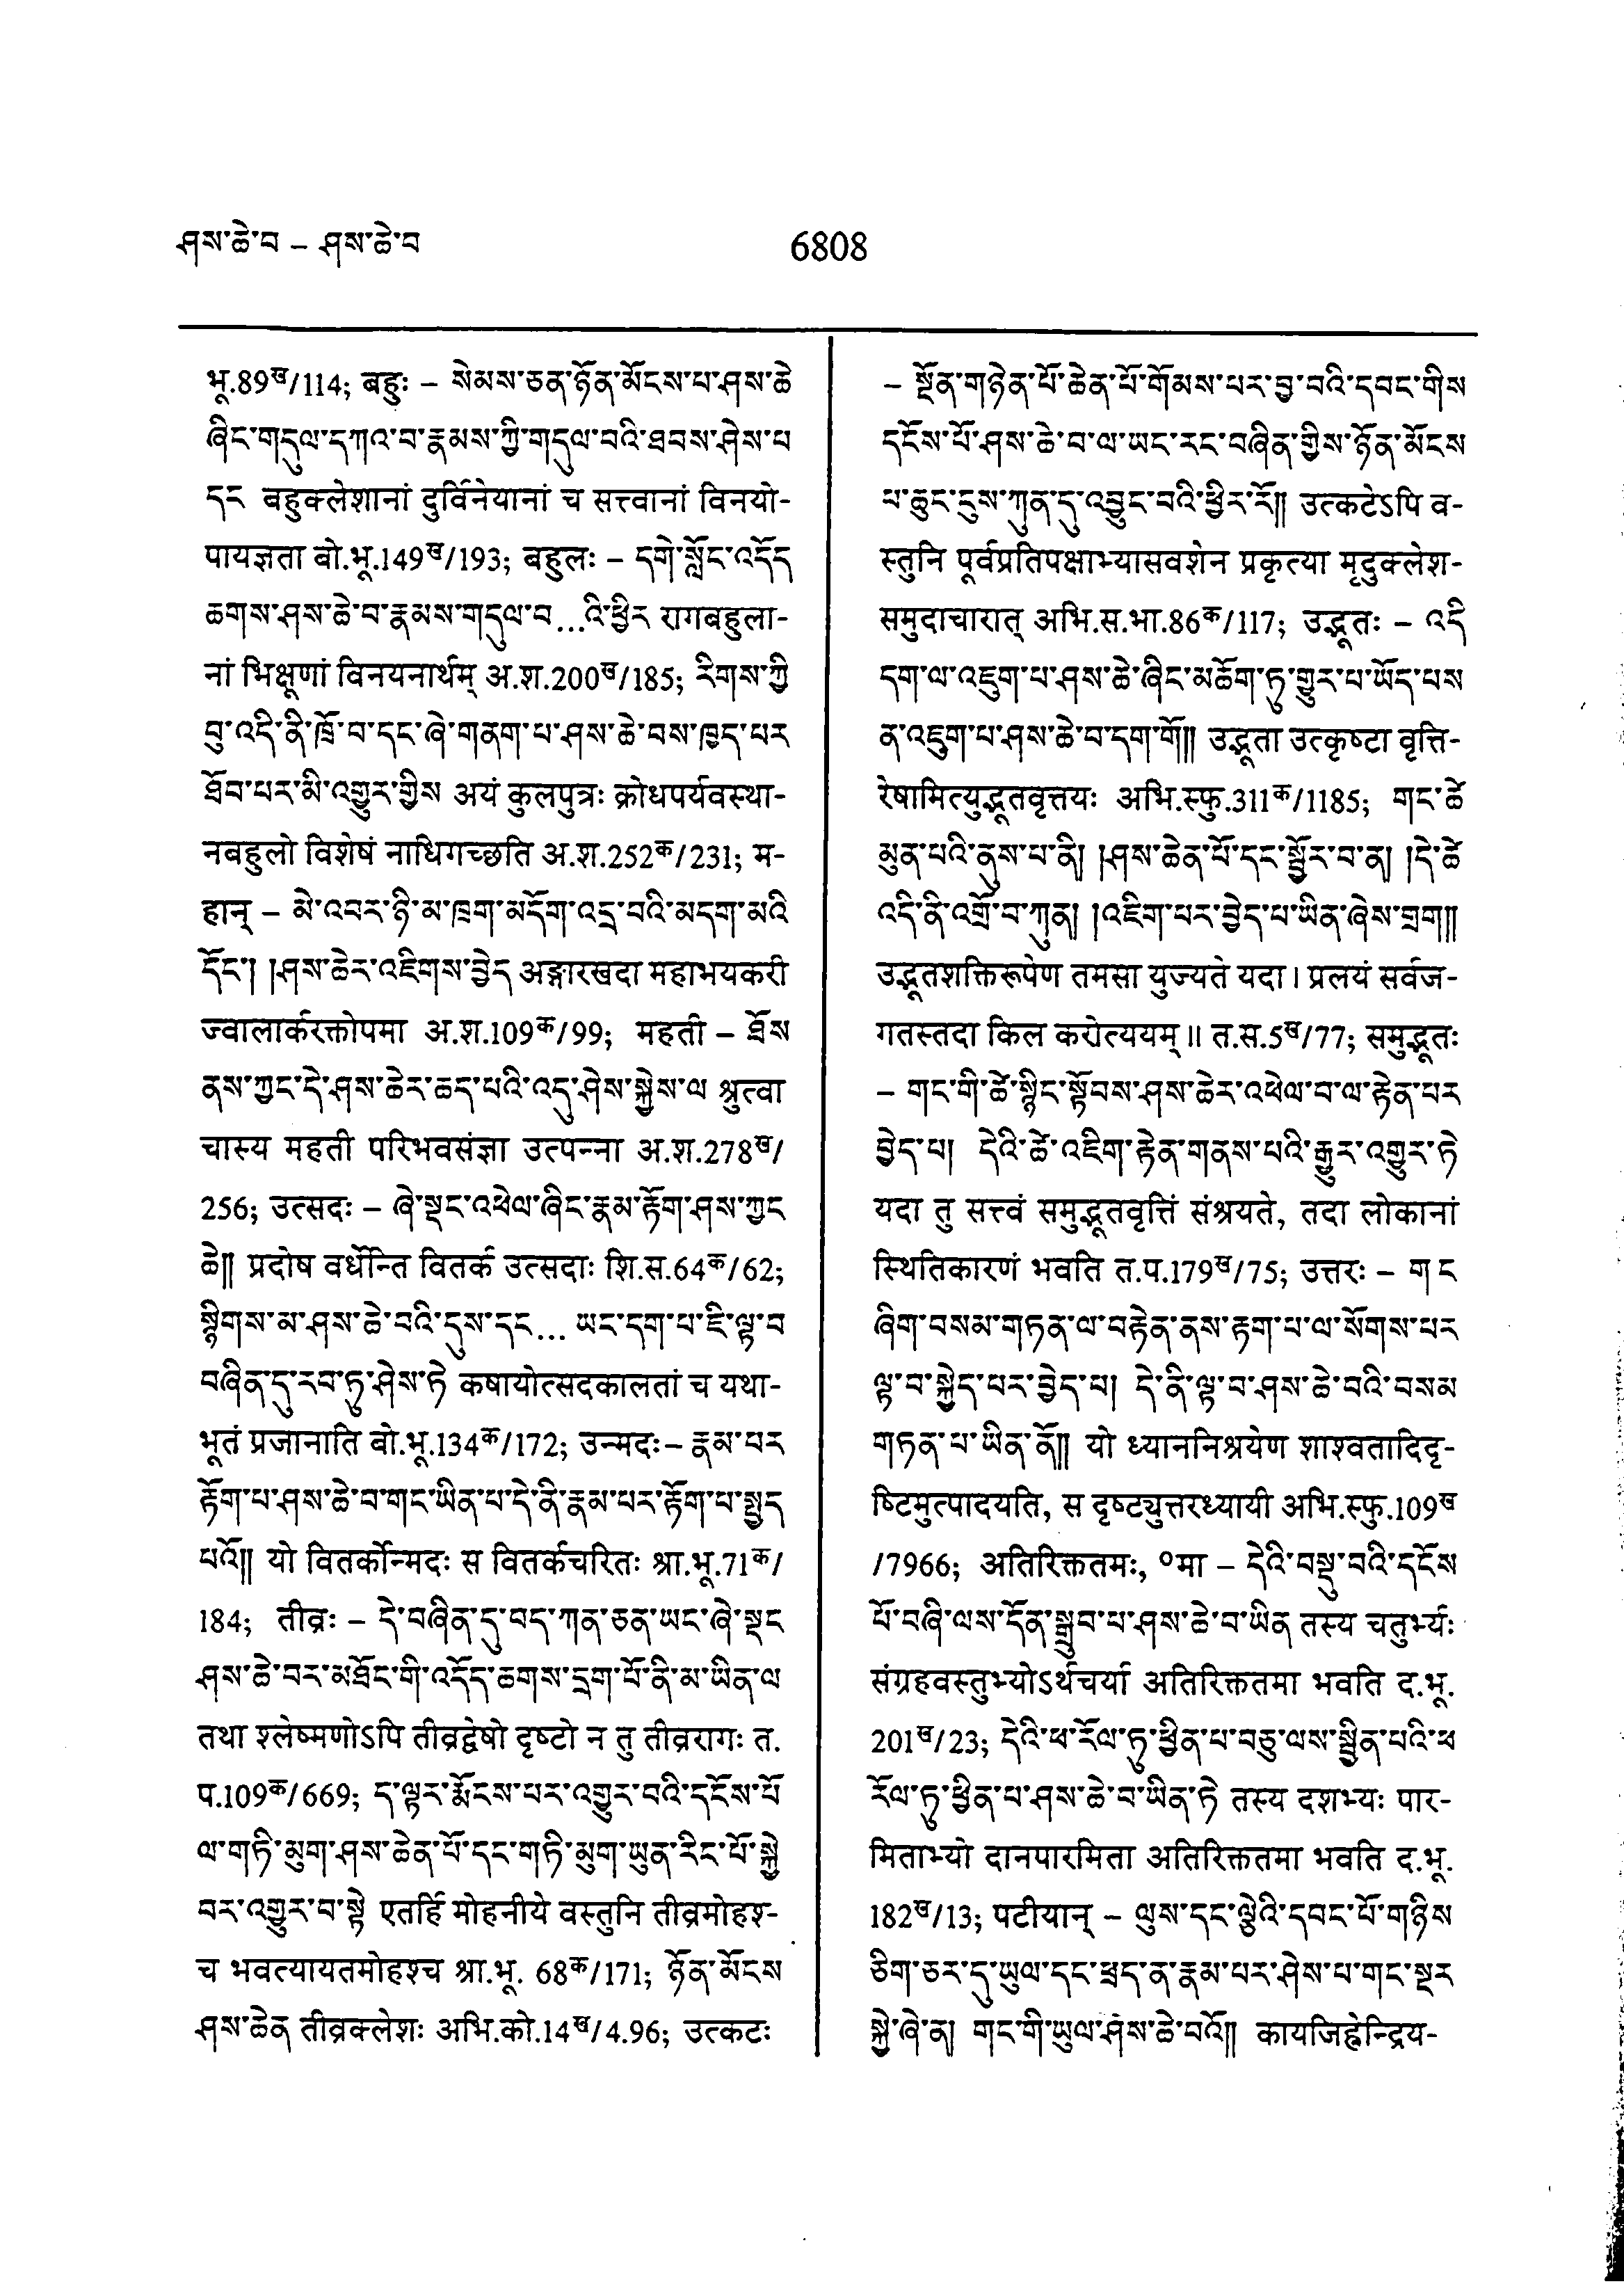 ཤས་ཆེ་བ – ཤས་ཆེ་བ
6808
भू.89ख/114; बहुः – སེམས་ཅན་ཉོན་མོངས་པ་ཤས་ཆེ
ཞིང་གདུལ་དཀའ་བ་རྣམས་ཀྱི་གདུལ་བའི་ཐབས་ཤེས་པ
དང བहुक्लेशानां दुर्विनेयानां च सत्त्वानां विनयो-
पायज्ञता बो.भू.149ख/193; बहुलः – དགེ་སློང་འདོད
ཆགས་ཤས་ཆེ་བ་རྣམས་གདུལ་བ...འི་ཕྱིར रागबहुला-
नां भिक्षूणां विनयनार्थम् अ.श.200ख/185; རིགས་ཀྱི
བུ་འདི་ནི་ཁྲོ་བ་དང་ཞེ་གནག་པ་ཤས་ཆེ་བས་ཁྱད་པར
ཐོབ་པར་མི་འགྱུར་གྱིས अयं कुलपुत्रः क्रोधपर्यवस्था-
नबहुलो विशेषं नाधिगच्छति अ.श.252क/231; म-
हान् – མེ་འབར་ཉི་མ་ཁྲག་མདོག་འདྲ་བའི་མདག་མའི
དོང་། །ཤས་ཆེར་འཇིགས་བྱེད अङ्गारखदा महाभयकरी
ज्वालार्करक्तोपमा अ.श.109क/99; महती – ཐོས
ནས་ཀྱང་དེ་ཤས་ཆེར་ཆད་པའི་འདུ་ཤེས་སྐྱེས་ལ श्रुत्वा
चास्य महती परिभवसंज्ञा उत्पन्ना अ.श.278ख/
256; उत्सदः – ཞེ་སྡང་འཕེལ་ཞིང་རྣམ་རྟོག་ཤས་ཀྱང
ཆེ༎ प्रदोष वर्धेन्ति वितर्क उत्सदाः शि.स.64क/62;
སྙིགས་མ་ཤས་ཆེ་བའི་དུས་དང... ཡང་དག་པ་ཇི་ལྟ་བ
བཞིན་དུ་རབ་ཏུ་ཤེས་ཏེ कषायोत्सदकालतां च यथा-
भूतं प्रजानाति बो.भू.134क/172; उन्मदः– རྣམ་པར
རྟོག་པ་ཤས་ཆེ་བ་གང་ཡིན་པ་དེ་ནི་རྣམ་པར་རྟོག་པ་སྤྱད
པའོ༎ यो वितर्कोन्मदः स वितर्कचरितः श्रा.भू.71क/
184; तीव्रः – དེ་བཞིན་དུ་བད་ཀན་ཅན་ཡང་ཞེ་སྡང
ཤས་ཆེ་བར་མཐོང་གི་འདོད་ཆགས་དྲག་པོ་ནི་མ་ཡིན་ལ
तथा श्लेष्मणोऽपि तीव्रद्वेषो दृष्टो न तु तीव्ररागः त.
प.109क/669; ད་ལྟར་རྨོངས་པར་འགྱུར་བའི་དངོས་པོ
ལ་གཏི་མུག་ཤས་ཆེན་པོ་དང་གཏི་མུག་ཡུན་རིང་པོ་སྐྱེ
བར་འགྱུར་བ་སྟེ एतर्हि मोहनीये वस्तुनि तीव्रमोहश्-
च भवत्यायतमोहश्च श्रा.भू. 68क/171; ཉོན་མོངས
ཤས་ཆེན तीव्रक्लेशः अभि.को.14ख/4.96; उत्कटः
– སྔོན་གཉེན་པོ་ཆེན་པོ་གོམས་པར་བྱ་བའི་དབང་གིས
དངོས་པོ་ཤས་ཆེ་བ་ལ་ཡང་རང་བཞིན་གྱིས་ཉོན་མོངས
པ་ཆུང་ངུས་ཀུན་དུ་འབྱུང་བའི་ཕྱིར་རོ༎ उत्कटेऽपि व-
स्तुनि पूर्वप्रतिपक्षाभ्यासवशेन प्रकृत्या मृदुक्लेश-
समुदाचारात् अभि.स.भा.86क/117; उद्भूतः – འདི
དག་ལ་འཇུག་པ་ཤས་ཆེ་ཞིང་མཆོག་ཏུ་གྱུར་པ་ཡོད་པས
ན་འཇུག་པ་ཤས་ཆེ་བ་དག་གོ༎ उद्भूता उत्कृष्टा वृत्ति-
रेषामित्युद्भूतवृत्तयः अभि.स्फु.311क/1185; གང་ཚེ
མུན་པའི་ནུས་པ་ནི། །ཤས་ཆེན་པོ་དང་སྦྱོར་བ་ན། །དེ་ཚེ
འདི་ནི་འགྲོ་བ་ཀུན། །འཇིག་པར་བྱེད་པ་ཡིན་ཞེས་གྲག༎
उद्भूतशक्तिरूपेण तमसा युज्यते यदा। प्रलयं सर्वज-
गतस्तदा किल करोत्ययम्॥ त.स.5ख/77; समुद्भूतः
– གང་གི་ཚེ་སྙིང་སྟོབས་ཤས་ཆེར་འཕེལ་བ་ལ་རྟེན་པར
བྱེད་པ། དེའི་ཚེ་འཇིག་རྟེན་གནས་པའི་རྒྱུར་འགྱུར་ཏེ
यदा तु सत्त्वं समुद्भूतवृत्तिं संश्रयते, तदा लोकानां
स्थितिकारणं भवति त.प.179ख/75; उत्तरः – གང
ཞིག་བསམ་གཏན་ལ་བརྟེན་ནས་རྟག་པ་ལ་སོགས་པར
ལྟ་བ་སྐྱེད་པར་བྱེད་པ། དེ་ནི་ལྟ་བ་ཤས་ཆེ་བའི་བསམ
གཏན་པ་ཡིན་ནོ༎ यो ध्याननिश्रयेण शाश्वतादिदृ-
ष्टिमुत्पादयति, स दृष्ट्युत्तरध्यायी अभि.स्फु.109ख
/7966; अतिरिक्ततमः, ॰मा – དེའི་བསྡུ་བའི་དངོས
པོ་བཞི་ལས་དོན་སྒྲུབ་པ་ཤས་ཆེ་བ་ཡིན तस्य चतुर्भ्यः
संग्रहवस्तुभ्योऽर्थचर्या अतिरिक्ततमा भवति द.भू.
201ख/23; དེའི་ཕ་རོལ་ཏུ་ཕྱིན་པ་བཅུ་ལས་སྦྱིན་པའི་ཕ
རོལ་ཏུ་ཕྱིན་པ་ཤས་ཆེ་བ་ཡིན་ཏེ तस्य दशभ्यः पार-
मिताभ्यो दानपारमिता अतिरिक्ततमा भवति द.भू.
182ख/13; पटीयान् – ལུས་དང་ལྕེའི་དབང་པོ་གཉིས
ཅིག་ཅར་དུ་ཡུལ་དང་ཕྲད་ན་རྣམ་པར་ཤེས་པ་གང་སྔར
སྐྱེ་ཞེ་ན། གང་གི་ཡུལ་ཤས་ཆེ་བའོ༎ कायजिह्वेन्द्रिय-